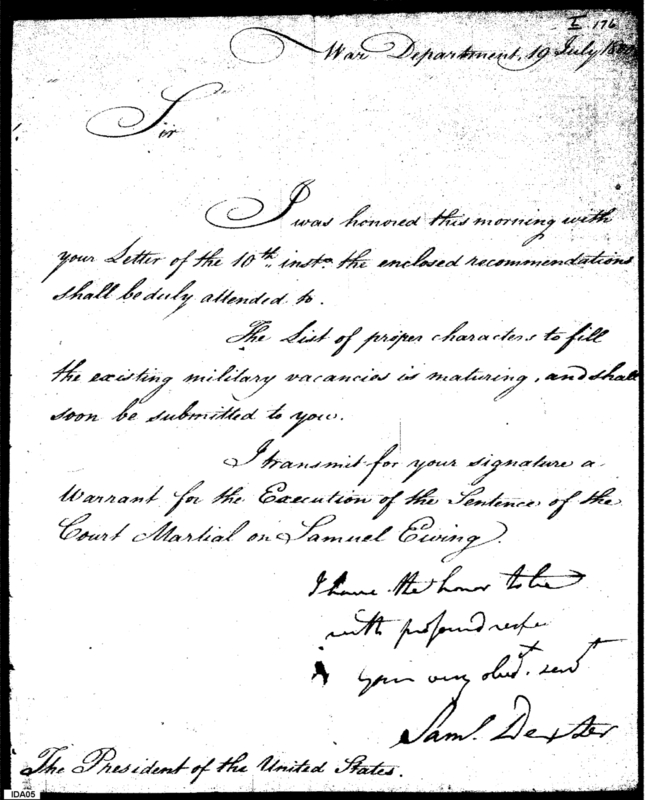 I 176
War Department, 19 July 1800
Sir
I was honored this morning with
your Letter of the 10th. inst. the enclosed recommendations
shall be duly attended to.
The List of proper characters to fill
the existing military vacancies is maturing, and shall
soon be submitted to you.
I transmit for your signature a
Warrant for the Execution of the Sentence of the
Court Martial on Samuel Ewing.
I have the honor to be
with profound respe
your very obedt. servt
Saml. Dexter
The President of the United States.
IDA05